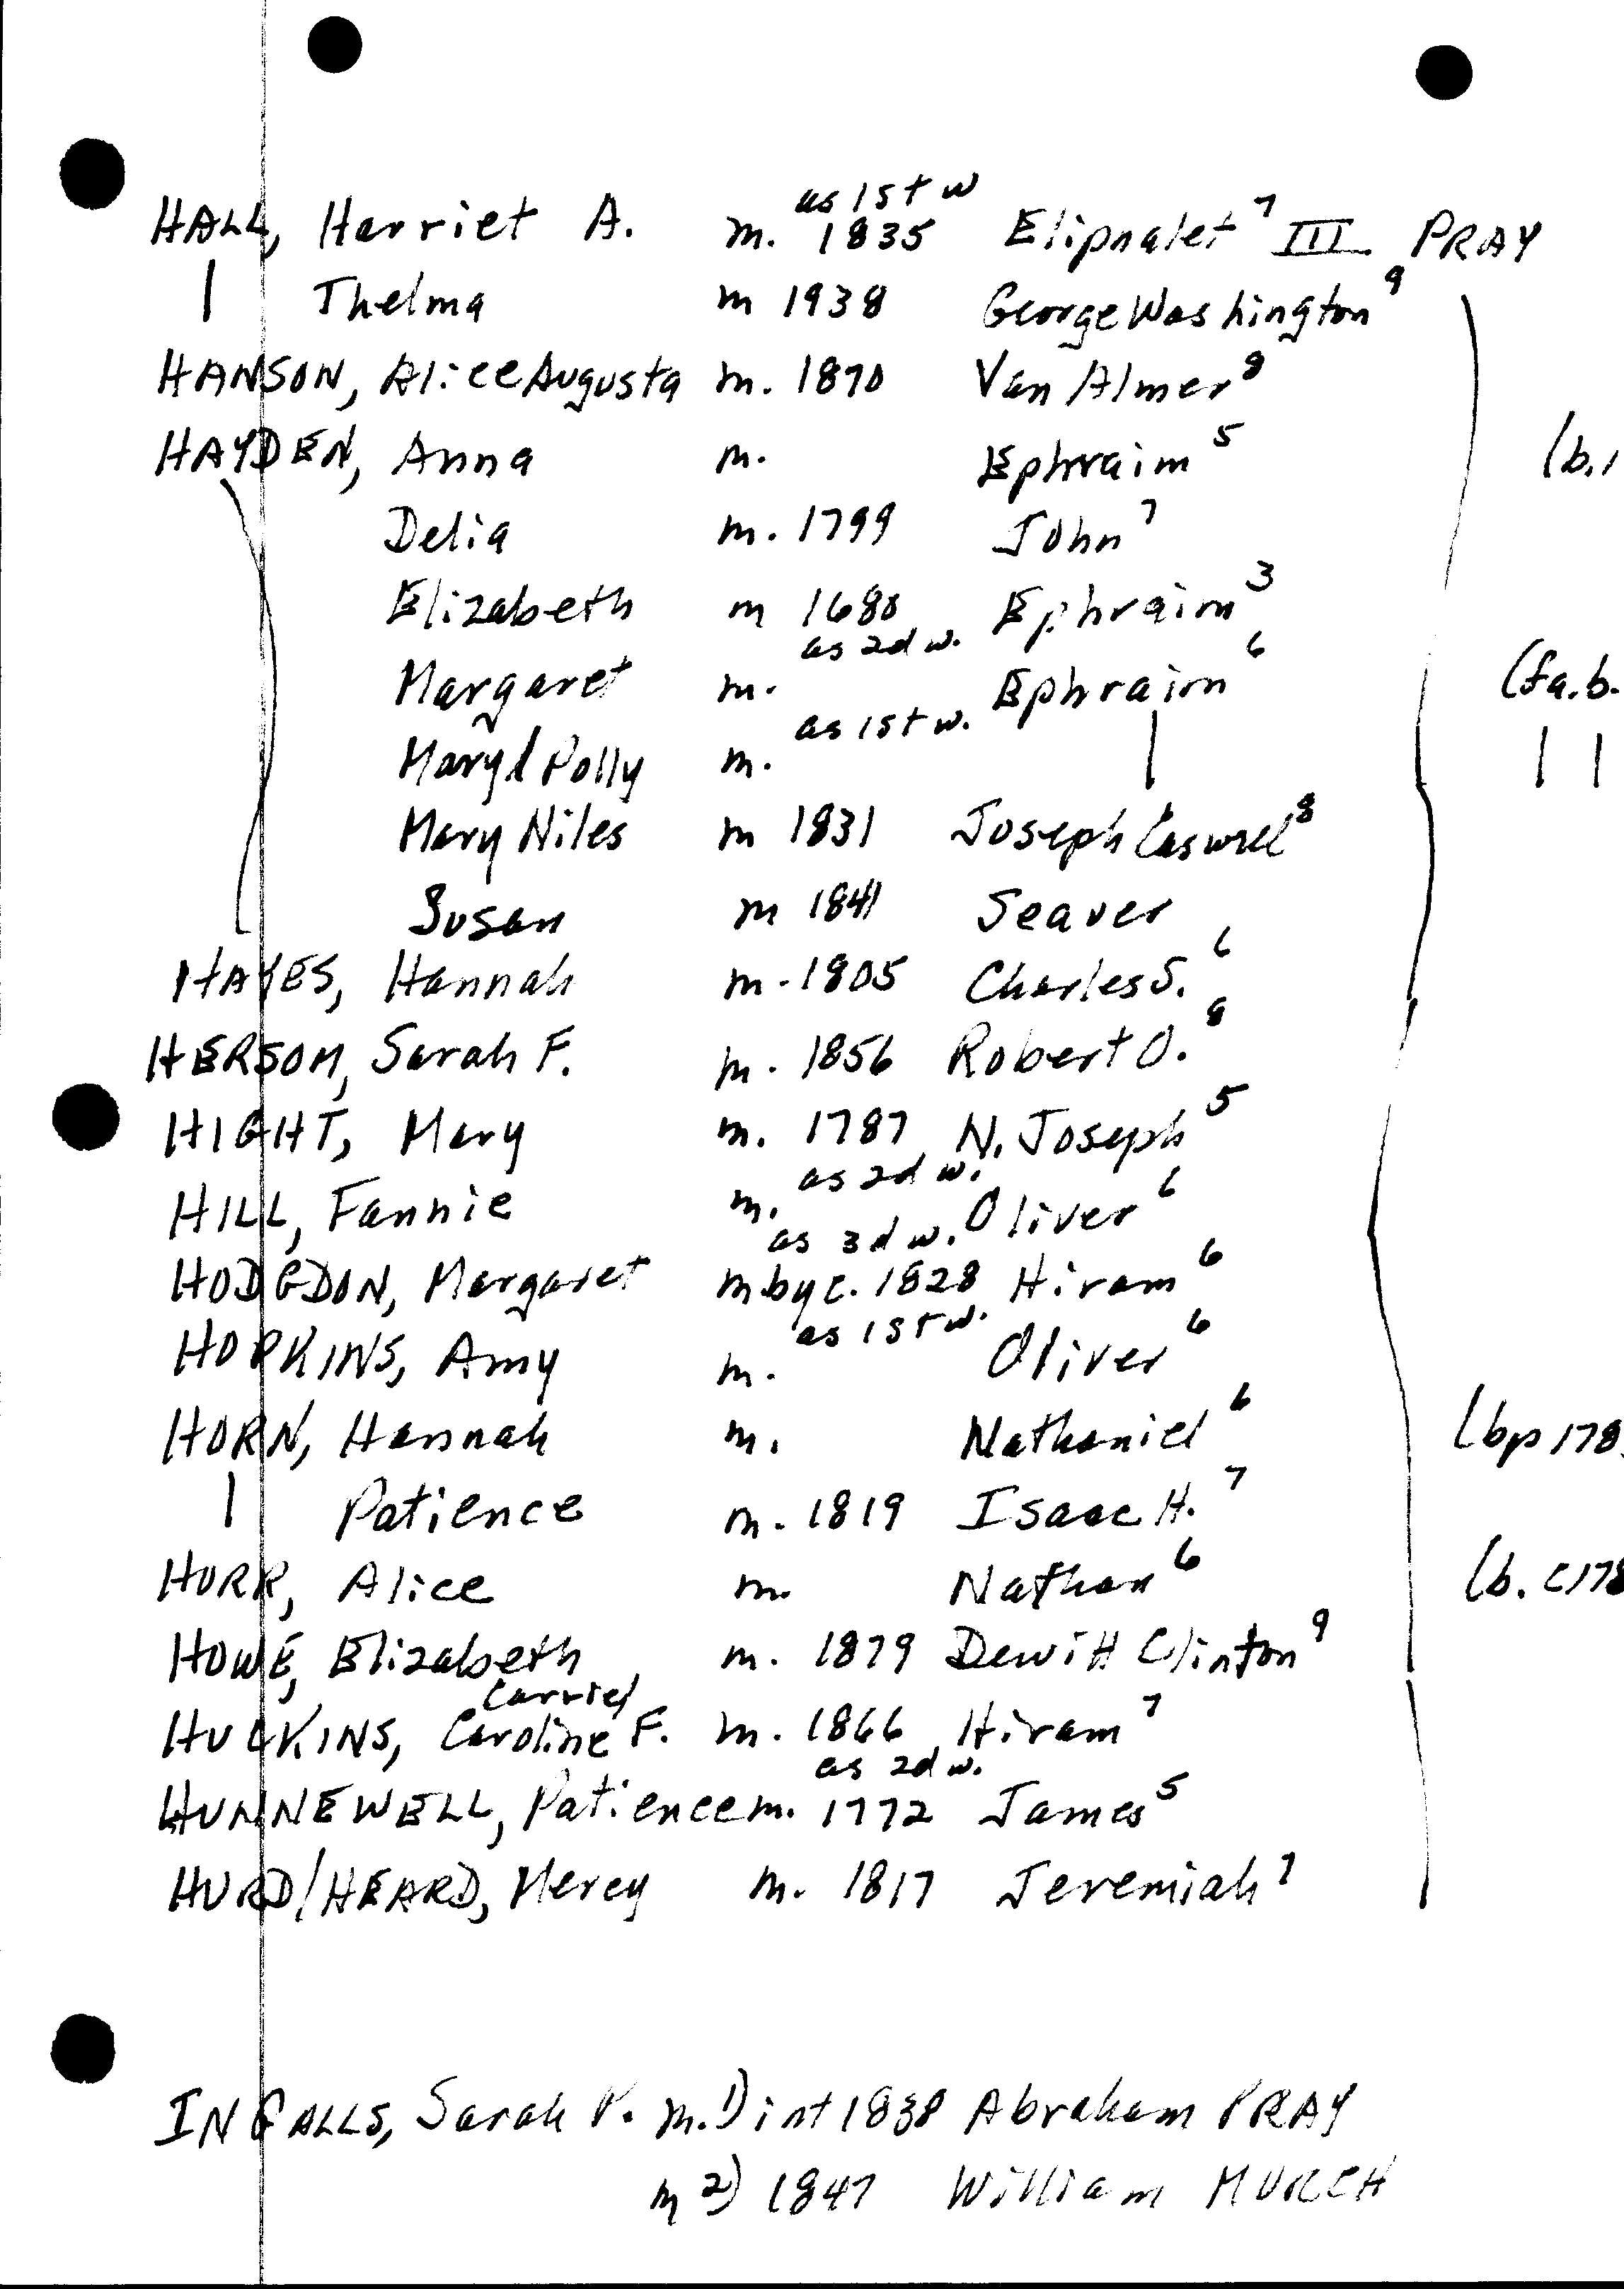 as 1st w
HALL, Harriet A. m. 1835 Elipnalet 7 III PRAY
| Thelma m 1938 George Washington 9
HANSON, Alice Augusta m. 1870 Van Almer 8
HAYDEN, Anna m. Ephraim 5 (b.1
Delia m. 1799 John 7
Elizabeth m 1680 Ephraim 3
as 2d w.
Margaret m. Ephraim 6 (fa.b.
as 1st w.
Mary/Polly m. | | |
Mary Niles m 1831 Joseph Caswell 8
Susan m 1841 Seaver
HAYES, Hannah m. 1805 Charles S. 6
HERSOM, Sarah F. m. 1856 Robert O. 8
HIGHT, Mary m. 1787 N. Joseph 5
as 2d w.
HILL, Fannie m. Oliver 6
as 3d w.
HODGDON, Margaret m by c. 1828 Hiram 6
as 1st w.
HOPKINS, Amy m. Oliver 6
HORN, Hannah m. Nathaniel 6 (bp 178
| Patience m. 1819 Isaac H. 7
HORR, Alice m. Nathan 6 (b. c178
HOWE, Elizabeth m. 1879 Dewitt Clinton 9
Carrie/
HUCKINS, Caroline F. m. 1866 Hiram 7
as 2d w.
HUNNEWELL, Patience m. 1772 James 5
HURD/HEARD, Mercy m. 1817 Jeremiah 7
INGALLS, Sarah P. m. 1) int 1838 Abraham PRAY
m 2) 1847 William MURCH